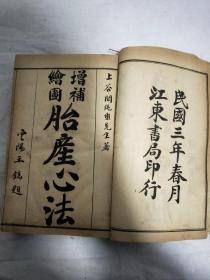 民國三年春月
江東書局印行
上谷閻純璽先生著
增補
繪圖
胎產心法
雲陽王鎬題